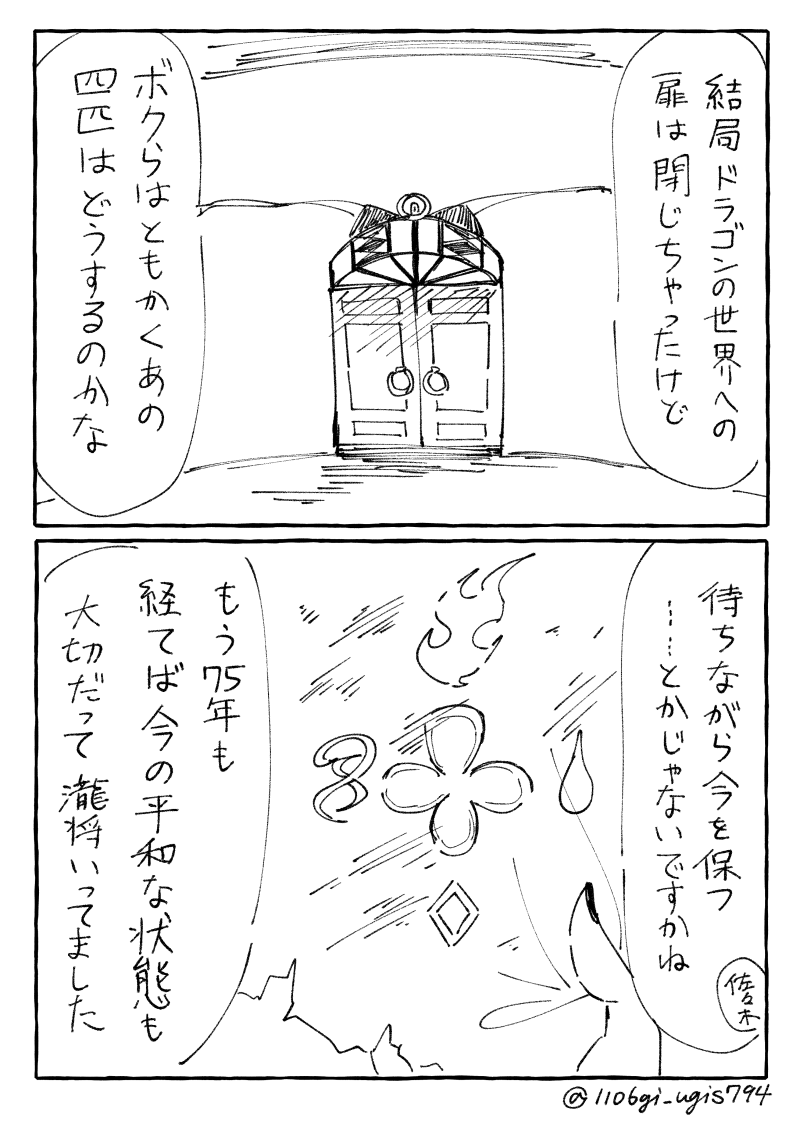 結局ドラゴンの世界への
扉は閉じちゃったけど
ボクらはともかくあの
四匹はどうするのかな
待ちながら今を保つ
……とかじゃないですかね
佐々木
もう75年も
経てば今の平和な状態も
大切だって瀧将いってました
@1106gi_ugis794